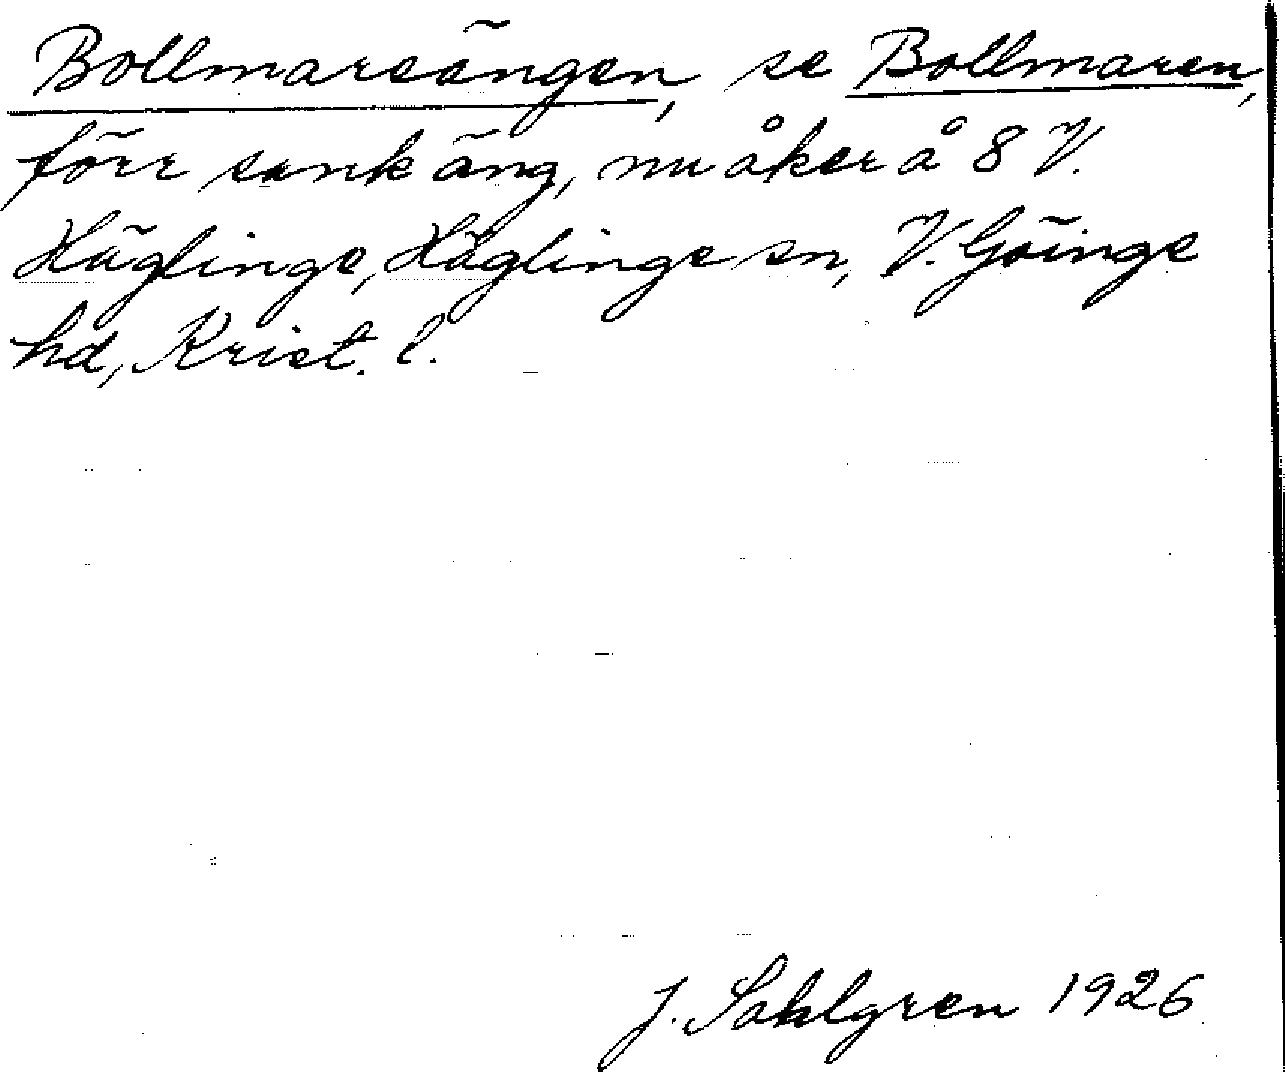 Bollmaresängen, se Bollmaren,
förr sank äng, nu åker å 8 V.
Häglinge, Häglinge sn, V. Göinge
hd, Krist. l.
J. Sahlgren 1926